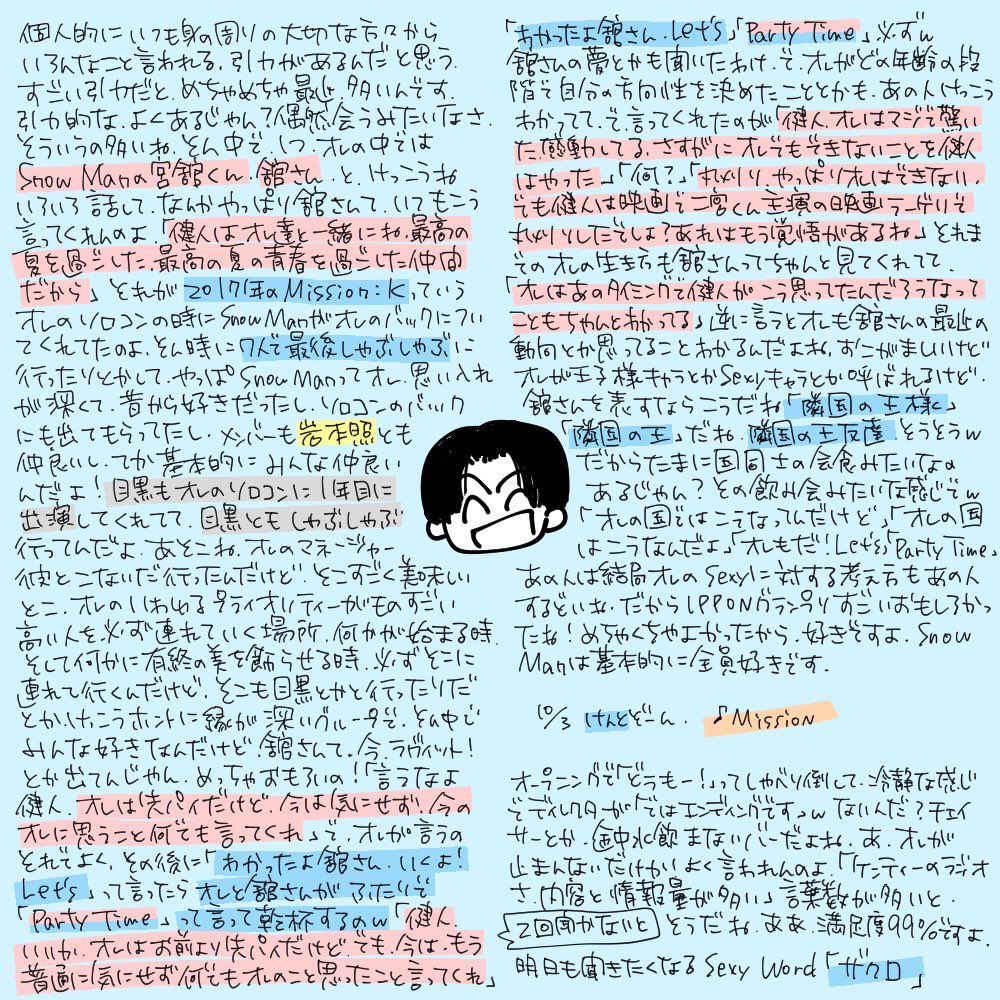 個人的にいつも身の周りの大切な方々から
いろんなこと言われる、引力があるんだと思う.
すごい引力だと、めちゃめちゃ最近、多いんです.
引力的な、よくあるじゃん?偶然会うみたいなさ.
そういうの多いね、そん中で、1つ、オレの中では
Snow Manの宮舘くん、舘さん、と、けっこうね
いろいろ話して、なんかやっぱり舘さんて、いつもこう
言ってくれんのよ「健人はオレ達と一緒にね、最高の
夏を過ごした、最高の夏の青春を過ごした仲間
だから」とそれが2017年のMission:Kっていう
オレのソロコンの時にSnow Manがオレのバックについ
てくれてたのよ、そん時に7人で最後しゃぶしゃぶに
行ったりとかして、やっぱSnow Manってオレ、思い入れ
が深くて、昔から好きだったし、ソロコンのバック
にも出てもらってたし、メンバーも岩本照とも
仲良いし、てか基本的にみんな仲良い
んだよ!目黒もオレのソロコンに1年目に
出演してくれてて、目黒ともしゃぶしゃぶ
行ってんだよ、あそこね、オレのマネージャー
彼とこないだ行ったんだけど、そこすごく美味しい
とこ、オレのいわゆるプライオリティーがものすごい
高い人を、必ず連れていく場所、何かが始まる時、
そして何かに有終の美を飾らせる時、必ずそこに
連れて行くんだけど、そこも目黒とかと行ったりだ
とか、けっこうホントに縁が深いグループで、そん中で
みんな好きなんだけど、舘さんて、今、ラヴィット!
とか出てんじゃん、めっちゃおもろいの!「言うなよ
健人、オレは先パイだけど、今は気にせず、今の
オレに思うこと何でも言ってくれ」って、オレが言うの
それでよく、その後に「わかったよ舘さん、いくよ!
Let's」って言ったらオレと舘さんがふたりで
「Party Time」って言って乾杯するのw「健人、
いいか、オレはお前より先パイだけど、でも、今は、もう
普通に気にせず何でもオレのこと思ったこと言ってくれ」
「わかったよ舘さん、Let's」「Party Time」必ずw
舘さんの夢とかも聞いたわけ、で、オレがどの年齢の段
階で自分の方向性を決めたこととかも、あの人けっこう
わかってて、で、言ってくれたのが「健人、オレはマジで驚い
た、感動してる、さすがにオレでもできないことを健人
はやった」「何?」「丸刈り、やっぱりオレはできない、
でも健人は映画で二宮くん主演の映画ラーゲリで
丸刈りしたでしょ?あれはもう覚悟があるね」とそれま
でのオレの生き方も舘さんってちゃんと見てくれてて、
「オレはあのタイミングで健人がこう思ってたんだろうなって
こともちゃんとわかってる」逆に言うとオレも舘さんの最近の
動向とか思ってることわかるんだよね、おこがましいけど
オレが王子様キャラとかSexyキャラとか呼ばれるけど、
舘さんを表すならこうだね「隣国の王様」
「隣国の王」だね、隣国の王友達、そうそうw
だからたまに国同士の会食みたいなの
あるじゃん?その飲み会みたいな感じでw
「オレの国ではこうなってんだけど」「オレの国
はこうなんだよ」「オレもだ!Let's」「Party Time」
あの人は結局オレのSexyに対する考え方もあの人
するどいね、だからIPPONグランプリすごいおもしろかっ
たね!めちゃくちゃよかったから、好きですよ、Snow
Manは基本的に全員好きです.
10/3 けんとぞーん. ♪Mission
オープニングで「どうもー!」ってしゃべり倒して、冷静な感じ
でディレクターが「ではエンディングです」w ないんだ?チェイ
サーとか、途中水飲まないバーだよね、あ、オレが
止まんないだけか、よく言われんのよ「ケンティーのラジオ
さ、内容と情報量が多い」言葉数が多いと、
2回聞かないと そうだね、ああ、満足度99%ですよ、
明日も聞きたくなるSexy Word「ザクロ」